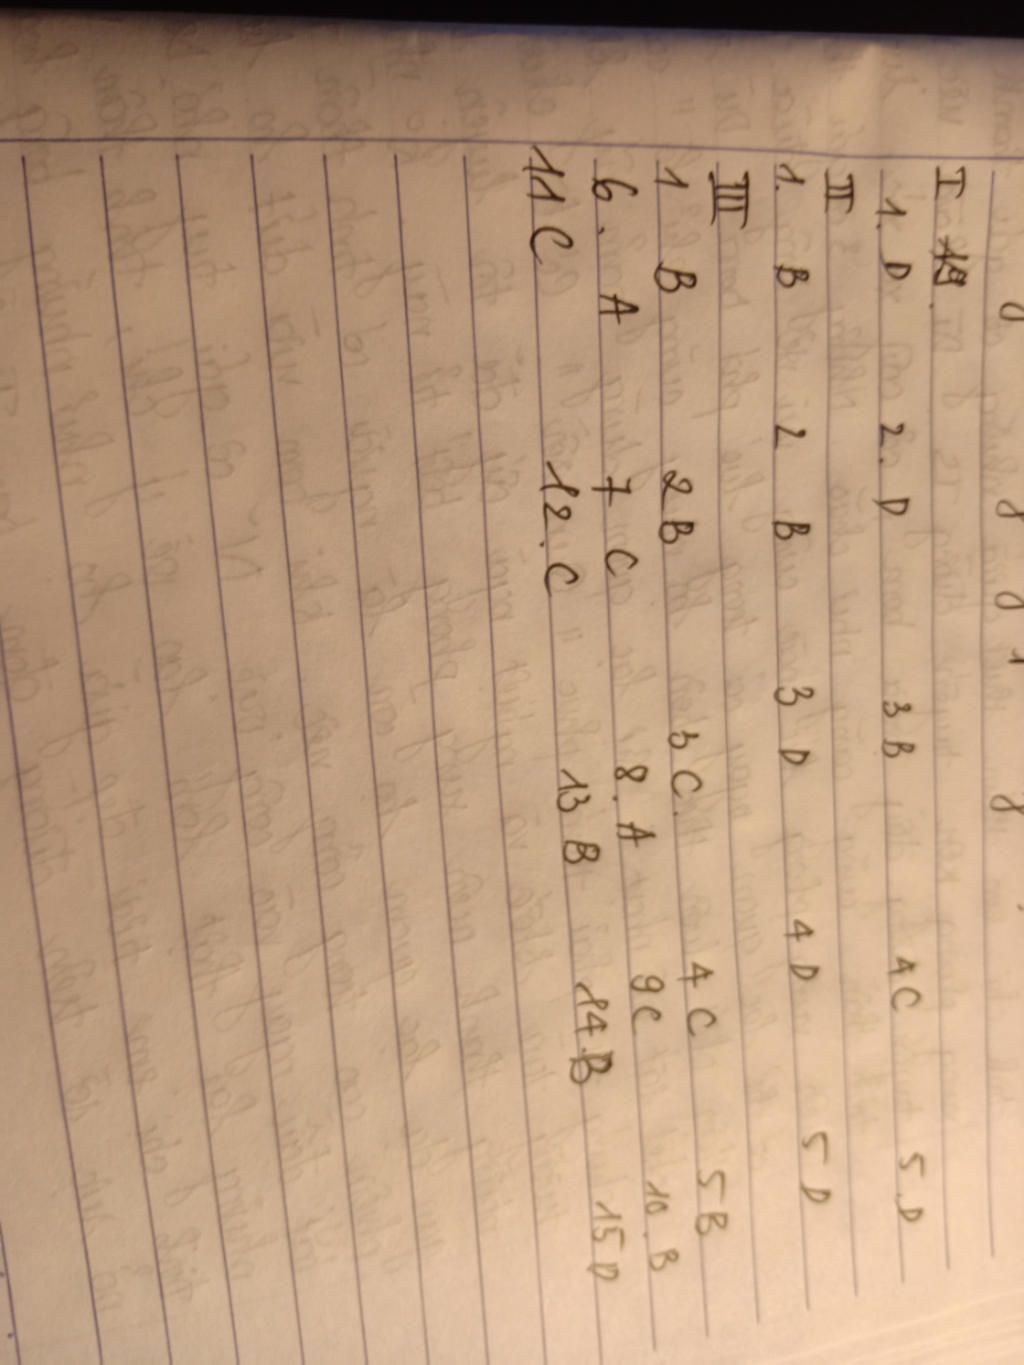 I
1. D 2. D 3 B 4 C 5. D
II
1. B 2 B 3 D 4 D 5 D
III
1 B 2 B 3 C. 4 C 5 B
6. A 7 C 8. A 9C 10. B
11 C 12. C 13 B 14.B 15 D